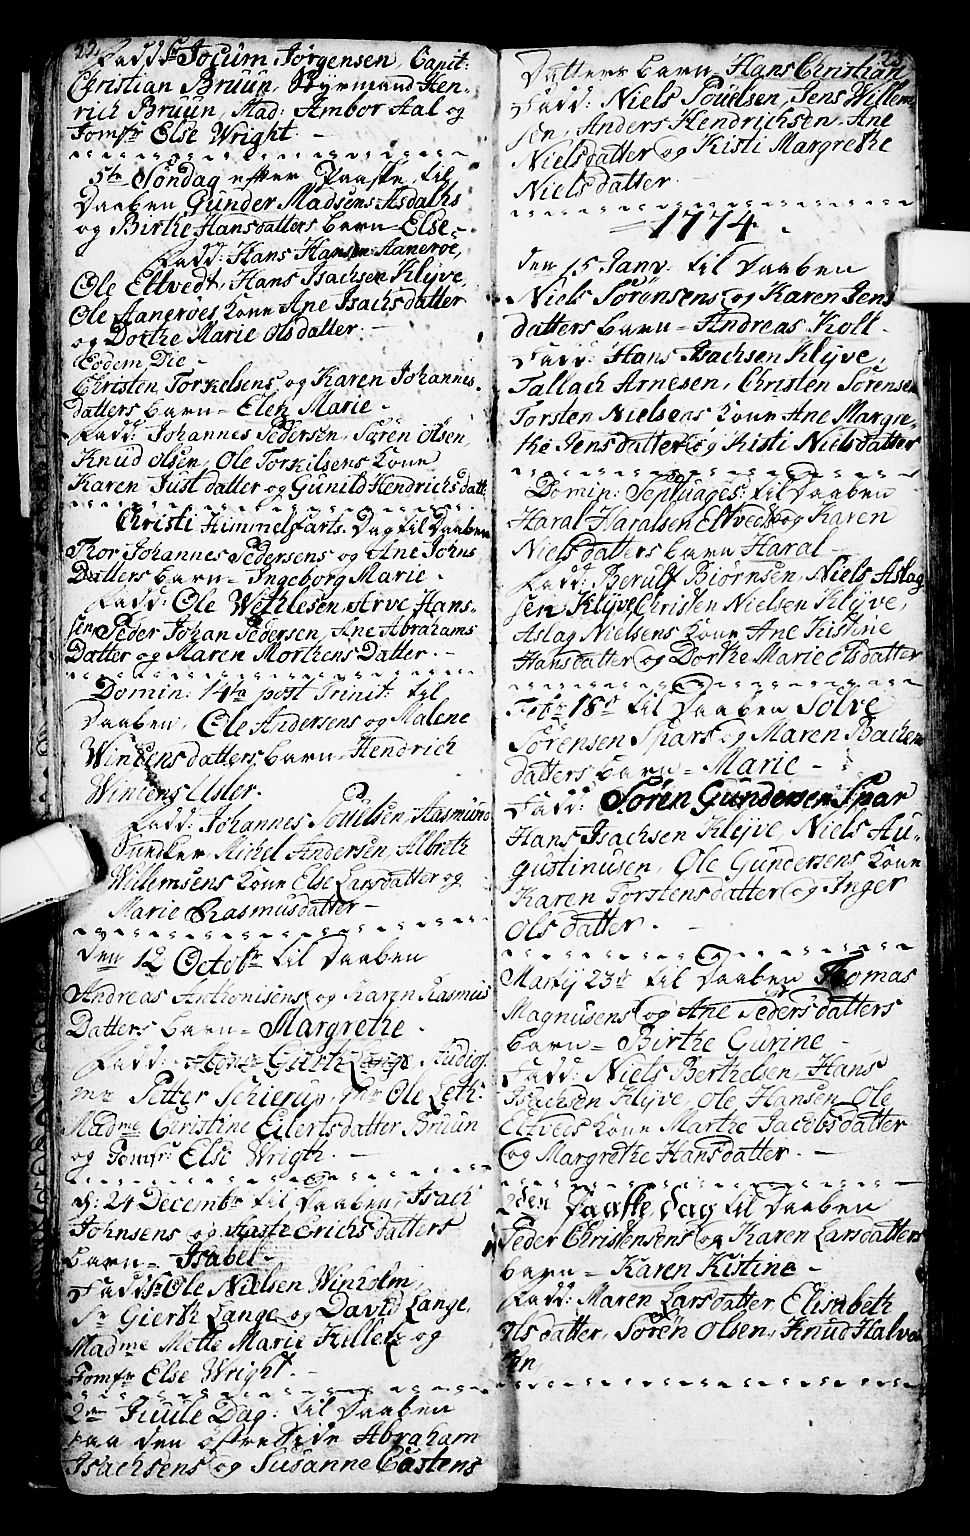 22.
Fadd: Sr Jocum Jørgensen, Capit:
Christian Bruun, Styrmand Hen-
rich Bruun, Mad: Ambor Aal og
Jomfr Else Wright.
5te Søndag efter Paaske, til
Daaben Gunder Madsens Aasdals
og Birthe Hansdatters barn = Else.
Fadd: Hans Hansen Aanerøe,
Ole Eltvedt, Hans Isachsen Klyve,
Ole Aanerøes Kone Ane Isachsdatter
og Dorthe Marie Olsdatter.
Eodem Die
Christen Torkelsens og Karen Johannes-
datters barn = Elen Marie.
Fadd: Johannes Pedersen, Søren Olsen,
Knud Olsen, Ole Torkilsens Kone
Karen Justdatter og Gunild Hendrichsdatt:
Christi Himmelfarts Dag til Daaben
Thor Johannes Pedersens og Ane Johns
Datters barn = Ingeborg Marie.
Fadd: Ole Wethlesen, Arve Hans-
sen, Peder Johan Pedersen, Ane Abrahams
Datter og Maren Morthens Datter.
Domin: 14ta post Trinit: til
Daaben, Ole Andersens og Malene
Wincensdatters barn = Hendrich
Wincens Uster.
Fadd: Johannes Poulsen, Rasmus
Michel Andersen, Albrith
Willemsens Kone Else Larsdatter og
Marie Rasmusdatter
den 12 Octobr til Daaben
Andreas Anthonisens og Karen Rasmus
Datters barn = Margrethe.
Fadd: Gierth Lange, Studios:
mr Petter Schierup, mr Ole Leth:
Madme Christine Eilertsdatter Bruun
og Jomfr: Else Wrigth.
d: 24 Decembr til Daaben, Isach
Johnsens og Erichsdatters
barn = Isabel.
Fadd: Sr Ole Nielsen Winholm,
Sr Gierth Lange og David Lange,
Madme Mette Marie Killets og
Jomfr Else Wright.
2den Juule Dag: til Daaben
paa den østre Side Abraham
Isachsens og Susanne Castens
23.
Datters barn Hans Christian
Fadd: Niels Poulsen, Jens Willem
sen, Anders Hendrichsen, Ane
Nielsdatter og Kisti Margrethe
Nielsdatter.
1774.
den 15 Janv: til Daaben
Niels Sørensens og Karen Jens
datters barn = Andreas Holt.
Fadd: Hans Isachsen Klyve,
Tallach Arnesen, Christen Sørensen
Torsten Nielsens Kone Ane Margre-
the Jensdatter og Kisti Nielsdatter
Domin: Septuages: til Daaben
Haral Haralsen Eltvedt og Karen
Nielsdatters barn Haral
Fadd: Berulf Biørnsen, Niels Aslag
sen Klyve, Christen Nielsen Klyve,
Aslag Nielsens Kone Ane Kistine
Hansdatter og Dorthe Marie Olsdatter
Febr 18d til Daaben Solve
Sørensen Spars og Maren Bachem
datters barn = Marie
Fadd: Søren Gundersen Spar
Hans Isachsen Klyve, Niels Au-
gustinusen, Ole Gundersens Kone
Karen Torstensdatter og Inger
Olsdatter.
Martij 23d til Daaben Thomas
Magnusens og Ane Pedersdatters
barn = Birthe Gurine
Fadd: Niels Berthelsen, Hans
Isachsen Klyve, Ole Hansen, Ole
Eltveds Kone Marthe Jacobsdatter
og Margrethe Hansdatter.
2den Paaske Dag til Daaben
Peder Christensens og Karen Larsdatters
barn = Karen Kistine
Fadd: Maren Larsdatter, Elisabeth
Olsdatter, Søren Olsen, Knud Halvor
sen